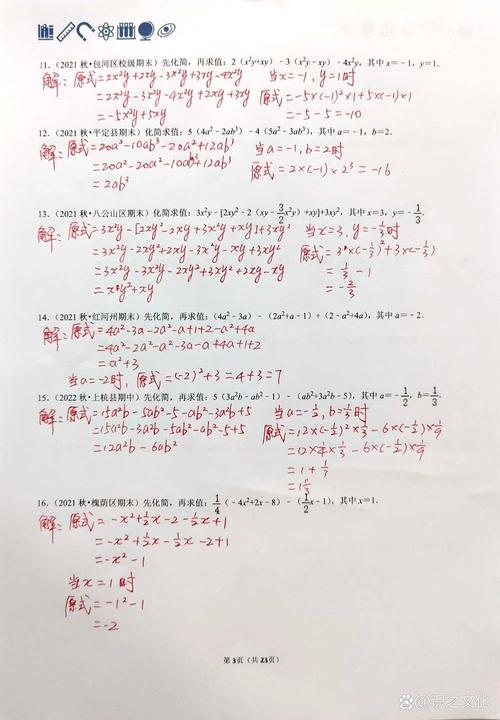 11.（2021秋•包河区校级期末）先化简，再求值：2（x²y+xy）﹣3（x²y﹣xy）﹣4x²y，其中x=﹣1，y=1.
解：原式=2x²y+2xy-3x²y+3xy-4x²y 当x=-1，y=1时
=2x²y-3x²y-4x²y+2xy+3xy 原式=-5×(-1)²×1+5×(-1)×1
=-5x²y+5xy =-5-5=-10
12.（2021秋•平定县期末）化简求值：5（4a²﹣2ab³）﹣4（5a²﹣3ab³），其中a=﹣1，b=2.
解：原式=20a²-10ab³-20a²+12ab³ 当a=-1，b=2时
=20a²-20a²-10ab³+12ab³ 原式=2×(-1)×2³=-16
=2ab³
13.（2021秋•八公山区期末）化简求值：3x²y﹣[2xy²﹣2（xy﹣3/2x²y）+xy]+3xy²，其中x=3，y=﹣1/3.
解：原式=3x²y-[2xy²-2xy+3x²y+xy]+3xy² 当x=3，y=-1/3时
=3x²y-2xy²+2xy-3x²y-xy+3xy² 原式=3×(-1/3)²+3×(-1/3)
=3x²y-3x²y-2xy²+3xy²+2xy-xy =1/3-1
=xy²+xy =-2/3
14.（2021秋•红河州期末）先化简，再求值：（4a²﹣3a）﹣（2a²+a﹣1）+（2﹣a²+4a），其中a=﹣2.
解：原式=4a²-3a-2a²-a+1+2-a²+4a
=4a²-2a²-a²-3a-a+4a+1+2
=a²+3
当a=-2时，原式=(-2)²+3=4+3=7
15.（2022秋•上杭县期中）先化简，再求值：5（3a²b﹣ab²﹣1）﹣（ab²+3a²b﹣5），其中a=﹣1/2，b=1/3.
解：原式=15a²b-5ab²-5-ab²-3a²b+5 当a=-1/2，b=1/3时
=15a²b-3a²b-5ab²-ab²-5+5 原式=12×(-1/2)²×1/3-6×(-1/2)×1/9
=12a²b-6ab² =12×1/4×1/3-6×(-1/2)×1/9
=1+1/3
=1 1/3
16.（2021秋•槐荫区期末）先化简，再求值：1/4（﹣4x²+2x﹣8）﹣（1/2x﹣1），其中x=1.
解：原式=-x²+1/2x-2-1/2x+1
=-x²+1/2x-1/2x-2+1
=-x²-1
当x=1时
原式=-1²-1
=-2
第3页（共23页）
Baidu百科@识之文化